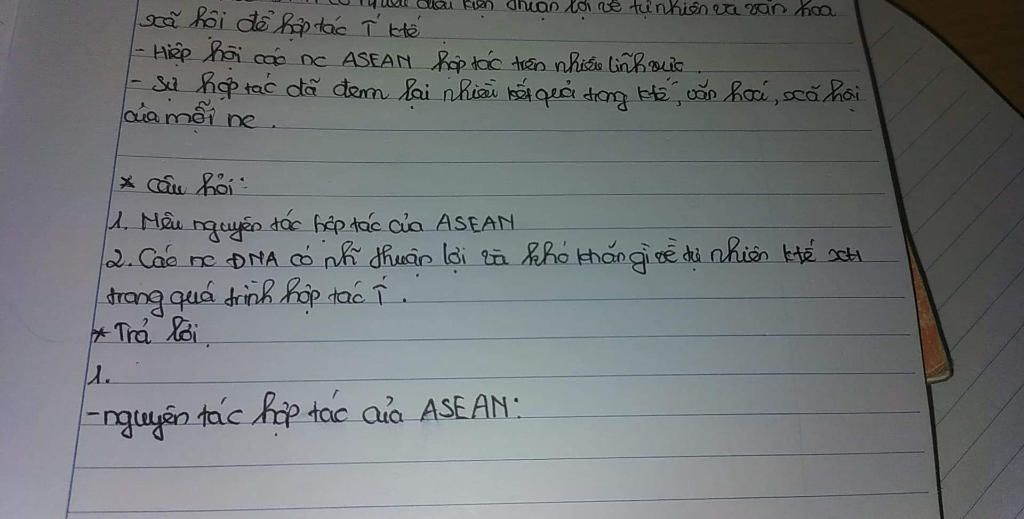 đk thuận lợi về tự nhiên và văn hóa
xã hội để hợp tác ↑ ktế
- Hiệp hội các nc ASEAN hợp tác trên nhiều lĩnh vực.
- Sự hợp tác đã đem lại nhiều kết quả trong ktế, văn hoá, xã hội
của mỗi nc.
* Câu hỏi:
1. Nêu nguyên tác hợp tác của ASEAN
2. Các nc ĐNA có nh~ thuận lợi và khó khăn gì về tự nhiên ktế xh
trong quá trình hợp tác ↑.
* Trả lời.
1.
- nguyên tác hợp tác của ASEAN: